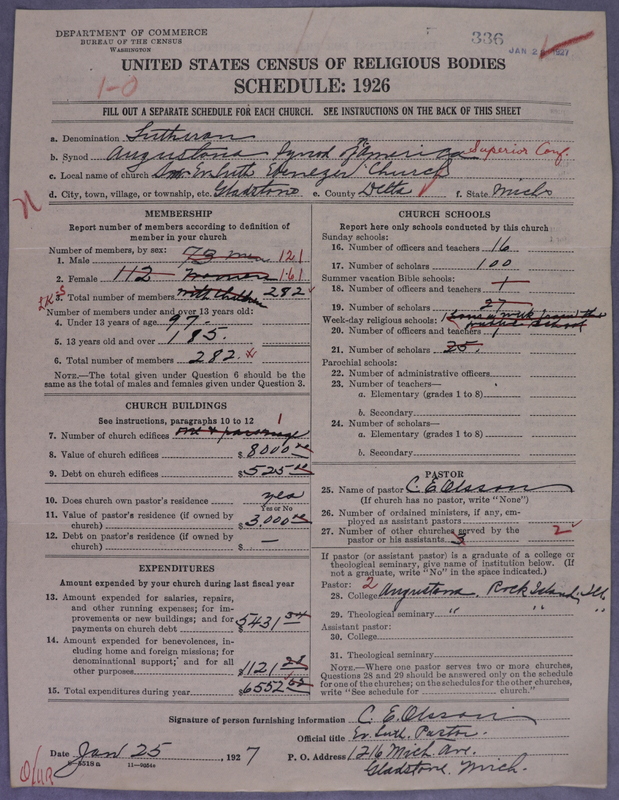 DEPARTMENT OF COMMERCE
BUREAU OF THE CENSUS
WASHINGTON
336
JAN 2 1927
UNITED STATES CENSUS OF RELIGIOUS BODIES
SCHEDULE: 1926
1-0
FILL OUT A SEPARATE SCHEDULE FOR EACH CHURCH. SEE INSTRUCTIONS ON THE BACK OF THIS SHEET
a. Denomination Lutheran
b. Synod Augustana Synod of America Superior Conf.
c. Local name of church Ev. Luth Ebenezer Church
d. City, town, village, or township, etc. Gladstone e. County Delta f. State Mich
MEMBERSHIP
Report number of members according to definition of
member in your church
Number of members, by sex:
1. Male 73 men 121
2. Female 112 women 161
3. Total number of members with children 282
Number of members under and over 13 years old:
4. Under 13 years of age 97.
5. 13 years old and over 185.
6. Total number of members 282
NOTE.—The total given under Question 6 should be the
same as the total of males and females given under Question 3.
CHURCH BUILDINGS
See instructions, paragraphs 10 to 12
7. Number of church edifices one & parsonage 1
8. Value of church edifices $ 8000
9. Debt on church edifices $ 525
10. Does church own pastor's residence yes
Yes or No
11. Value of pastor's residence (if owned by
church) $ 3,000
12. Debt on pastor's residence (if owned by
church) $ —
EXPENDITURES
Amount expended by your church during last fiscal year
13. Amount expended for salaries, repairs,
and other running expenses; for im-
provements or new buildings; and for
payments on church debt $5431 34
14. Amount expended for benevolences, in-
cluding home and foreign missions; for
denominational support; and for all
other purposes $1121 28
15. Total expenditures during year $6552 62
CHURCH SCHOOLS
Report here only schools conducted by this church
Sunday schools:
16. Number of officers and teachers 16
17. Number of scholars 100
Summer vacation Bible schools:
18. Number of officers and teachers 1
19. Number of scholars 27
Week-day religious schools:
20. Number of officers and teachers
21. Number of scholars 25.
Parochial schools:
22. Number of administrative officers
23. Number of teachers—
a. Elementary (grades 1 to 8)
b. Secondary
24. Number of scholars—
a. Elementary (grades 1 to 8)
b. Secondary
PASTOR
25. Name of pastor C. E. Olsson
(If church has no pastor, write "None")
26. Number of ordained ministers, if any, em-
ployed as assistant pastors
27. Number of other churches served by the
pastor or his assistants 3 2
If pastor (or assistant pastor) is a graduate of a college or
theological seminary, give name of institution below. (If
not a graduate, write "No" in the space indicated.)
Pastor: 2
28. College Augustana, Rock Island, Ill.
29. Theological seminary " " "
Assistant pastor:
30. College
31. Theological seminary
NOTE.—Where one pastor serves two or more churches,
Questions 28 and 29 should be answered only on the schedule
for one of the churches; on the schedules for the other churches,
write "See schedule for ______ church."
Signature of person furnishing information C. E. Olsson
Official title Ev. Luth. Pastor.
Date Jan 25, 1927 P. O. Address 1216 Mich Ave.
Gladstone, Mich.